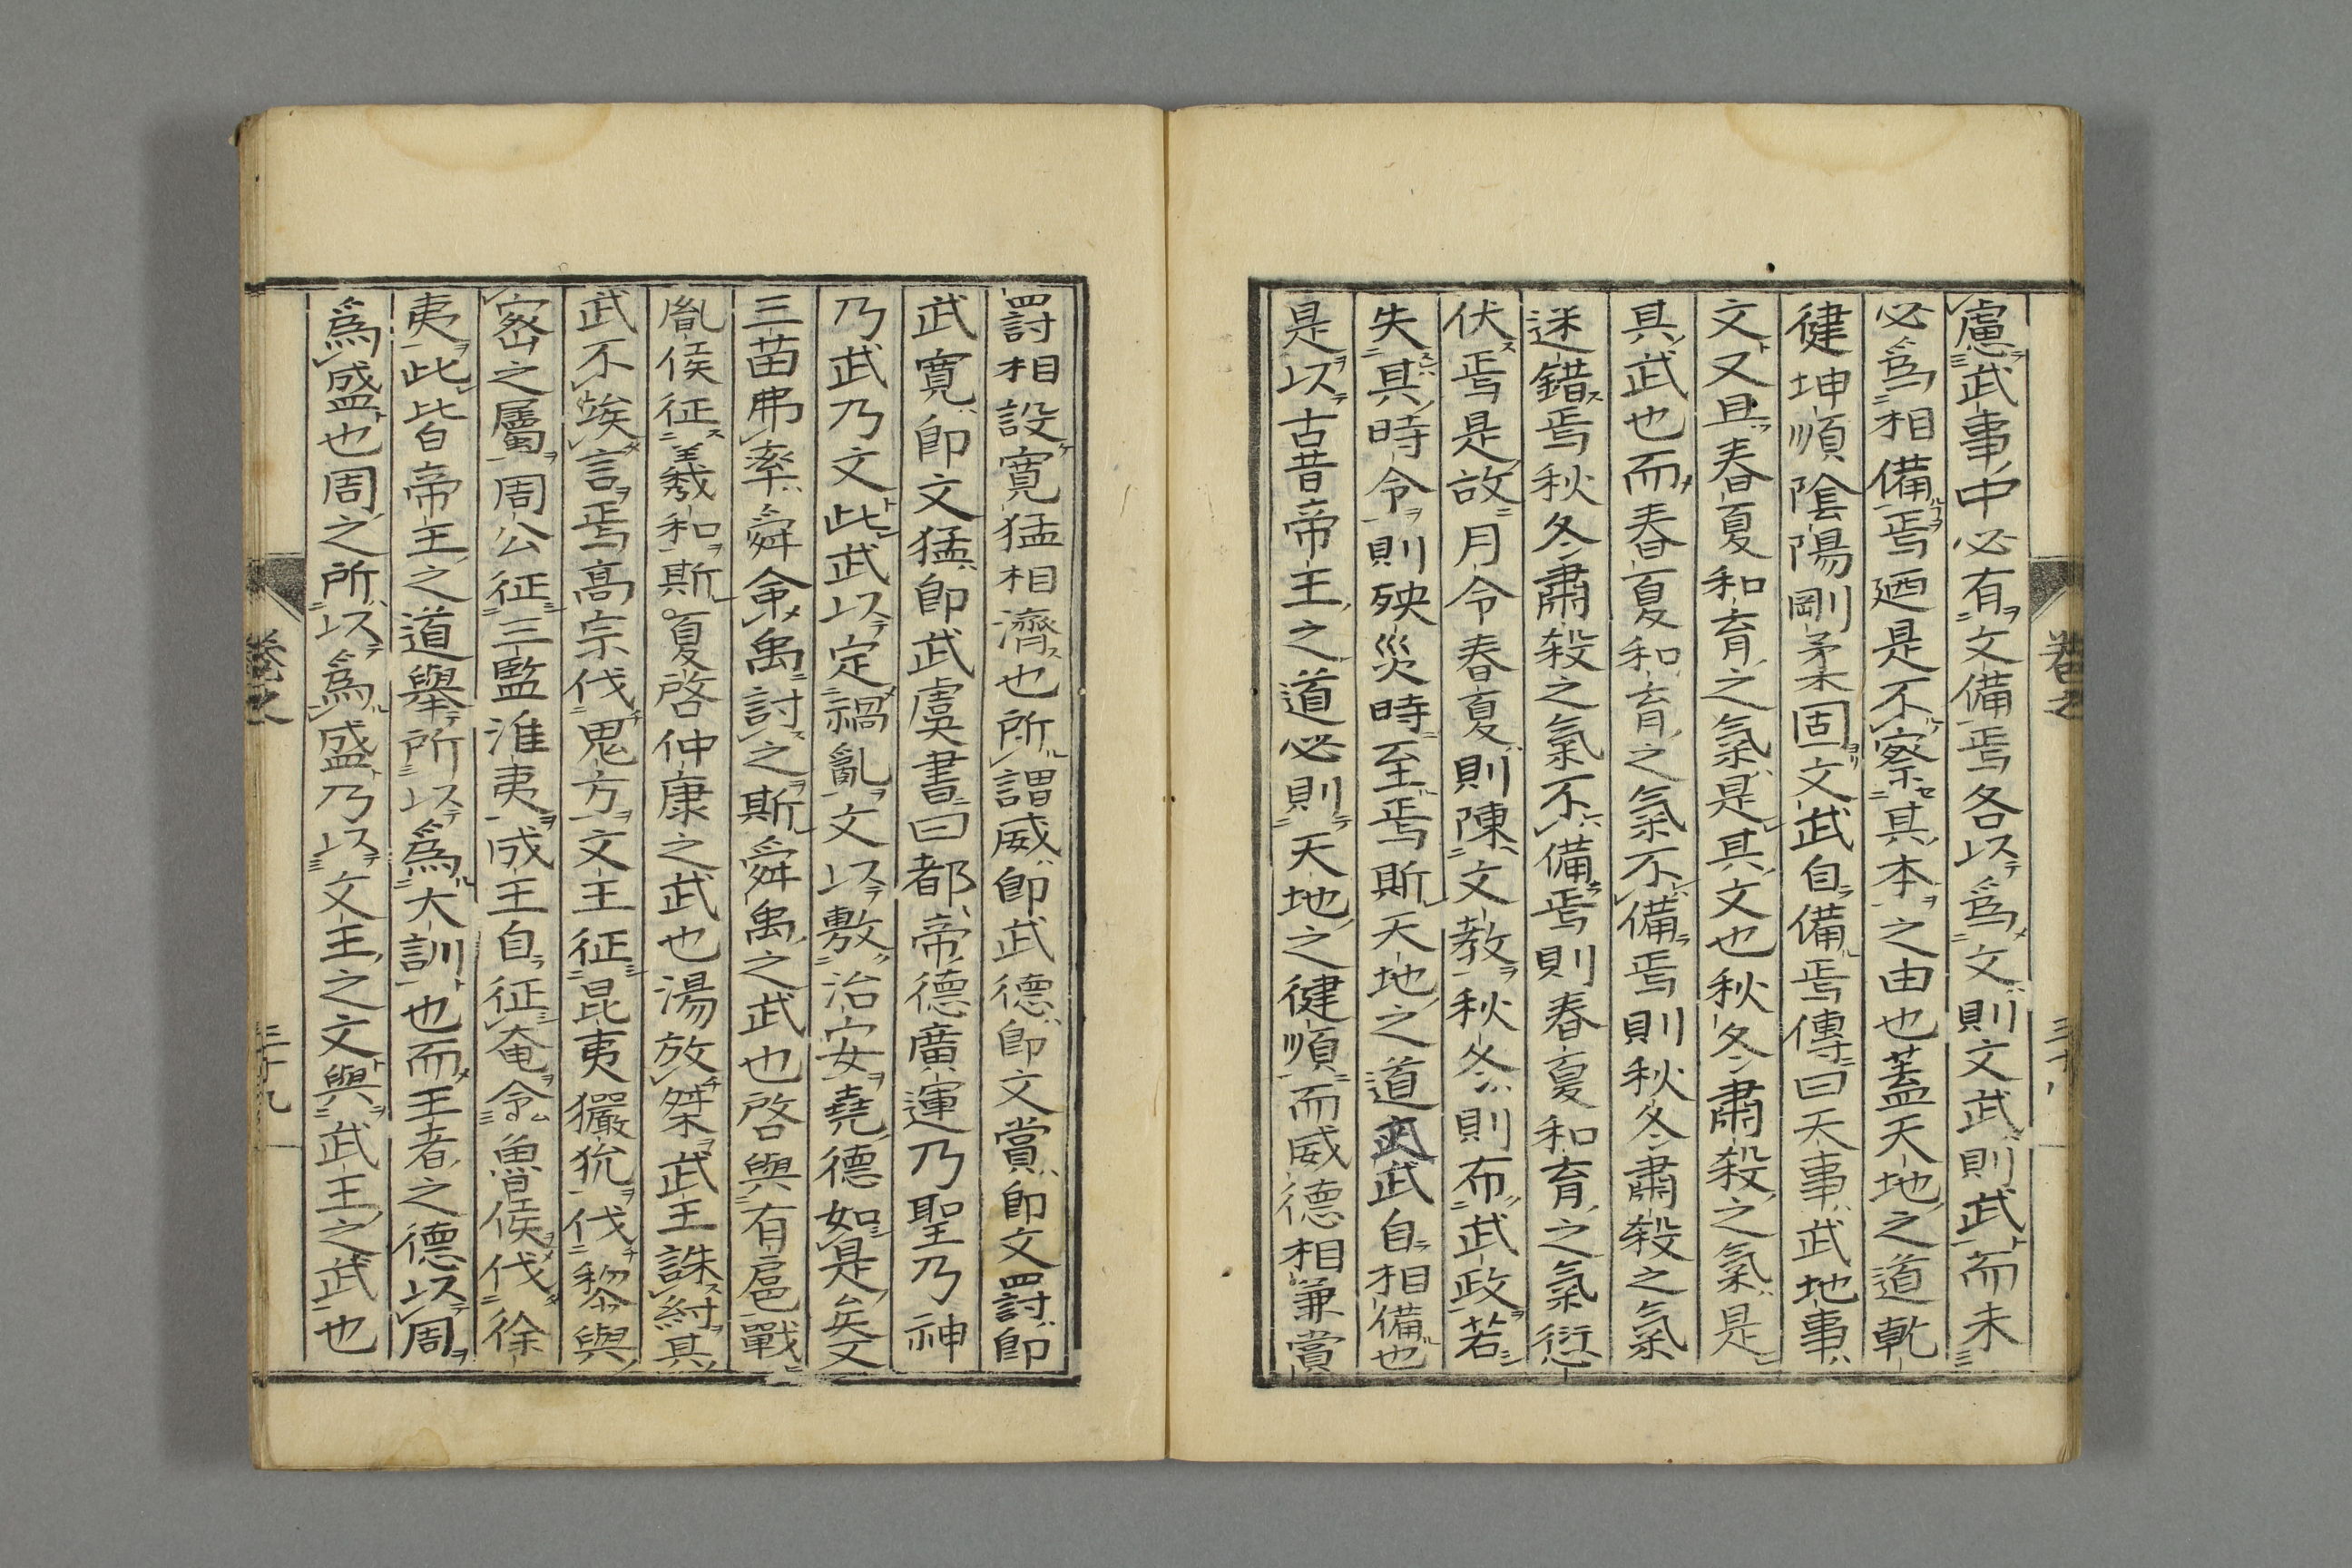 慮武事中必有文備焉各以爲文則文武則武而未
必爲相備焉廼是不察其本之由也蓋天地之道乾
健坤順陰陽剛柔固文武自備焉傳曰天事武地事
文又且春夏和育之氣是其文也秋冬肅殺之氣是
其武也而春夏和育之氣不備焉則秋冬肅殺之氣
迷錯焉秋冬肅殺之氣不備焉則春夏和育之氣愆
伏焉是故月令春夏則陳文教秋冬則布武政若
失其時令則殃災時至焉斯天地之道武自相備也
是以古昔帝王之道必則天地之健順而威德相兼賞
罰相設寬猛相濟也所謂威即武德即文賞即文罰即
武寬即文猛即武虞書曰都帝德廣運乃聖乃神
乃武乃文此武以定禍亂文以敷治安堯德如是矣文
三苗弗率舜命禹討之斯舜禹之武也啓與有扈戰
胤侯征羲和斯夏啓仲康之武也湯放桀武王誅紂其
武不俟言焉高宗伐鬼方文王征昆夷玁狁伐黎與
密之屬周公征三監淮夷成王自征奄令魯侯伐徐
夷此皆帝王之道舉所以爲大訓也而王者之德以周
爲盛也周之所以爲盛乃以文王之文與武王之武也
卷之
三十九